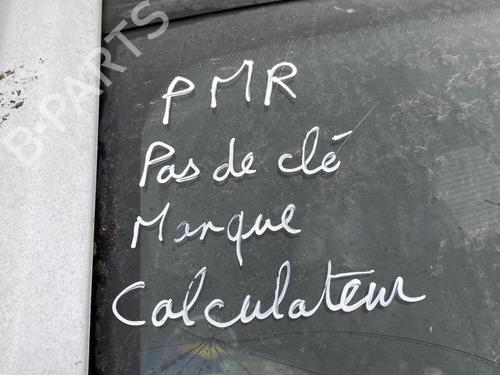 B-PARTS
PMR
Pas de clé
Marque
Calculateur